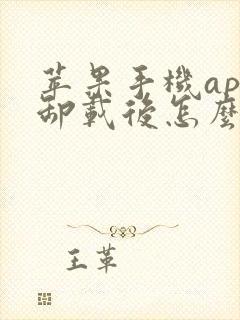 苹果手機ap
卸載後怎麼
王革